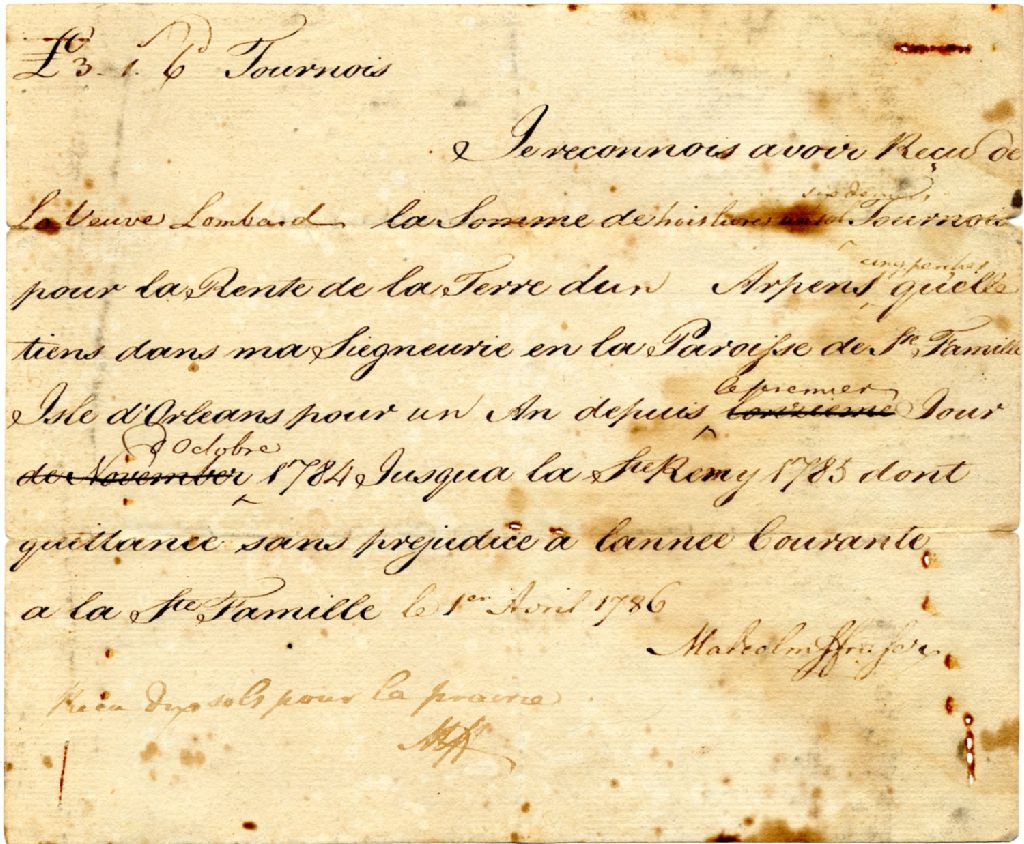 £ 3. 1. 6d Tournois
Je reconnois avoir Recu de
six deniers
La Veuve Lombard la Somme de trois livres un sol Tournois
cinq perches
pour la Rente de la Terre dun Arpens quelle
tiens dans ma Siegneurie en la Paroisse de Ste Famille
le premier
Isle d'Orleans pour un An depuis Jour
d'Octobre
de November 1784 Jusqua la Ste Remy 1785 dont
quittance sans prejudice a lannee Courante
a la Ste Famille le 1er Avril 1786
Malcolm Fraser
Recu dix sols pour la prairie
MF